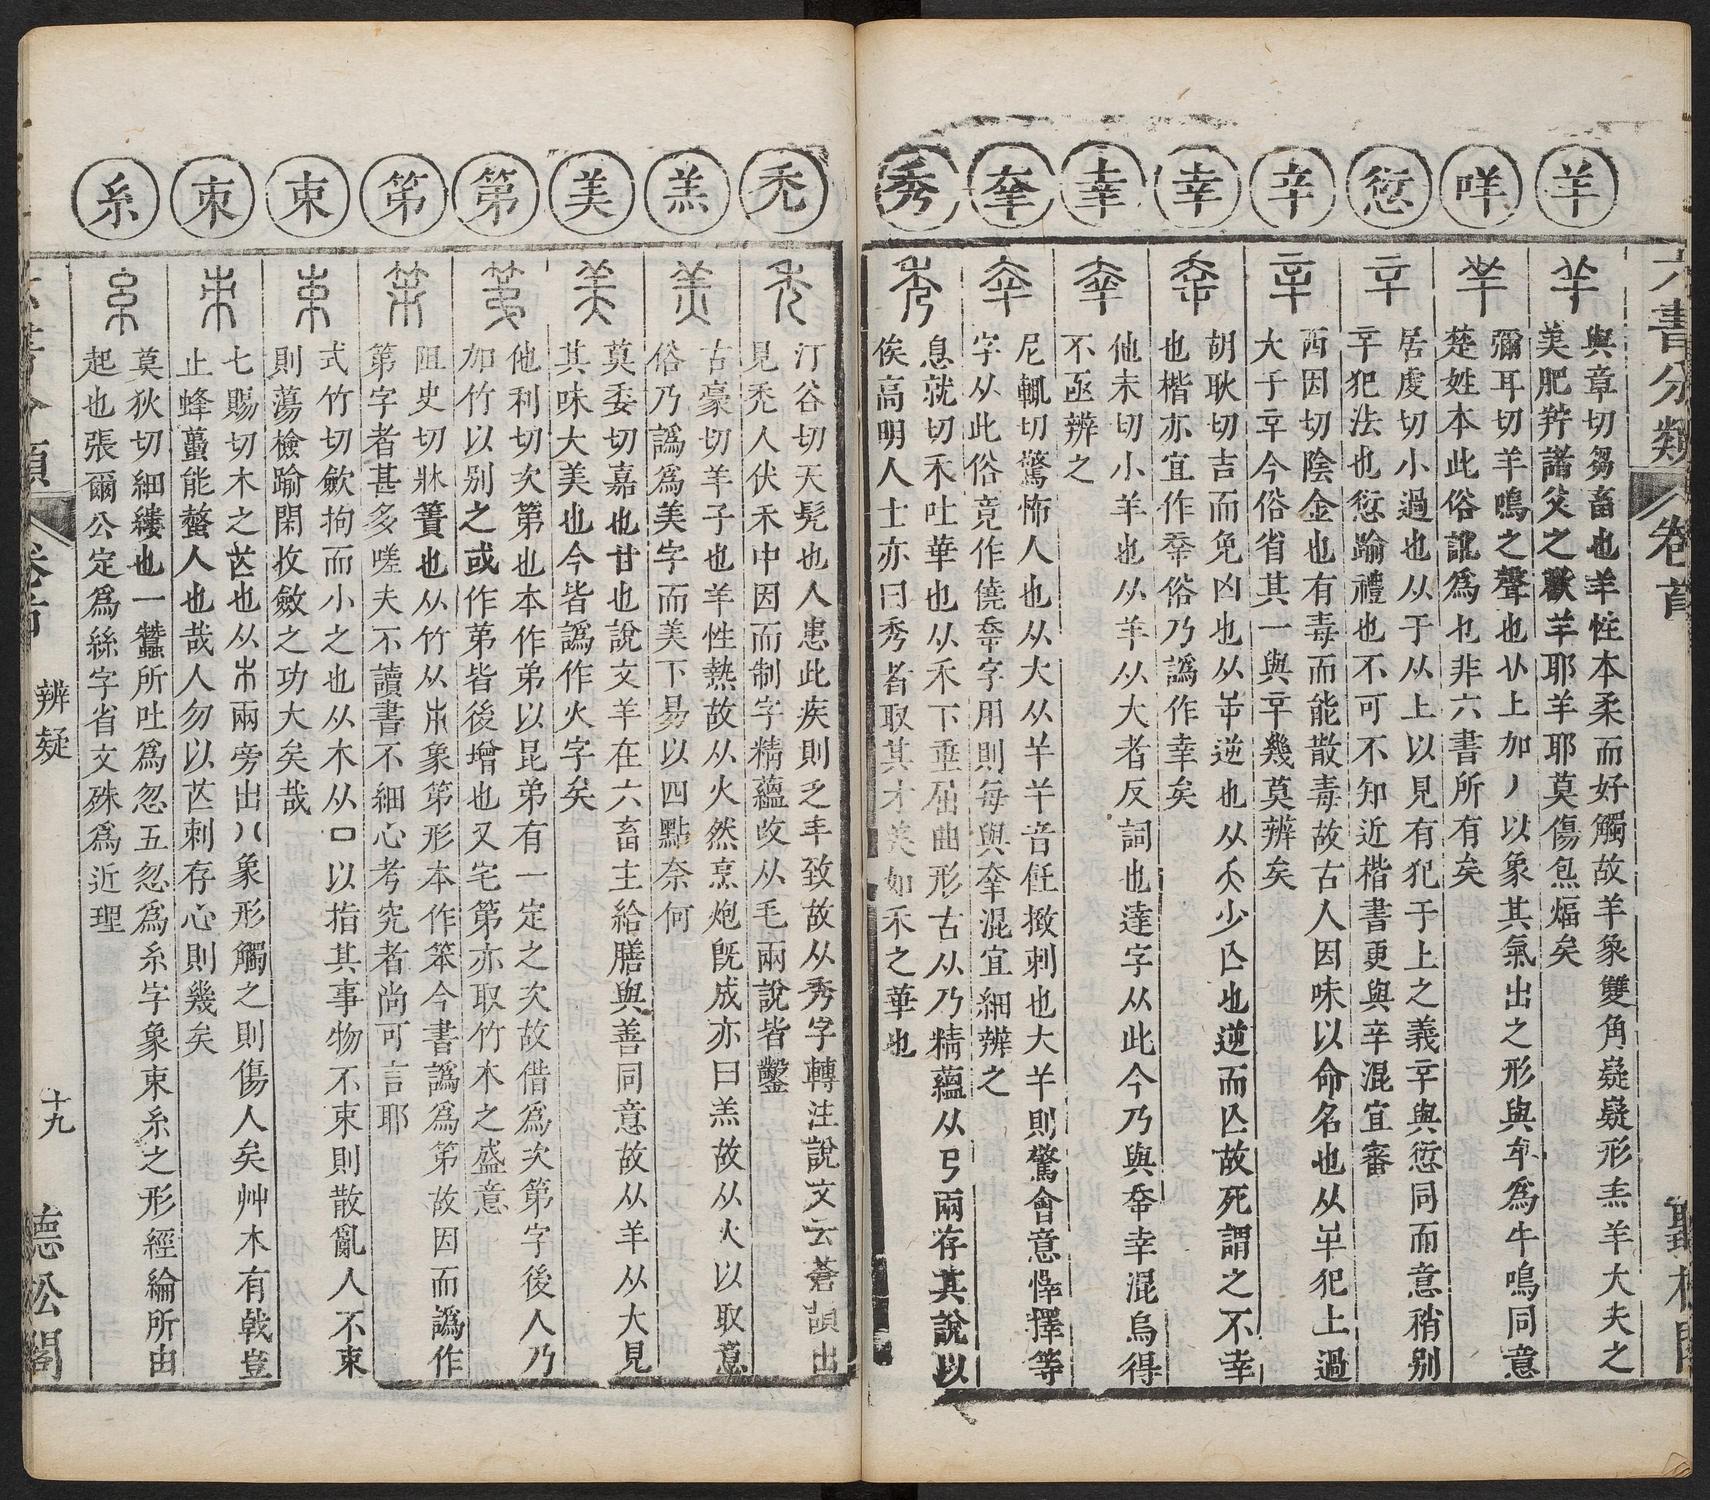 六書分類 卷首
聽松閣
羊
與章切芻畜也羊性本柔而好觸故羊象雙角嶷嶷形羔羊大夫之
美肥羜諸父之歡羊耶羊耶莫傷炰煏矣
咩
彌耳切羊鳴之聲也从上加丿以象其氣出之形與牟爲牛鳴同意
楚姓本此俗訛爲乜非六書所有矣
愆
居虔切小過也从于从上以見有犯于上之義䇂與愆同而意稍别
䇂犯法也愆踰禮也不可不知近楷書更與辛混宜審
辛
西因切陰金也有毒而能散毒故古人因味以命名也从𢆉犯上過
大于䇂今俗省其一與䇂幾莫辨矣
幸
胡耿切吉而免凶也从屰逆也从夭少亾也逆而亾故死謂之不幸
也楷亦宜作㚔俗乃譌作幸矣
羍
他末切小羊也从羊从大者反詞也達字从此今乃與㚔幸混烏得
不亟辨之
㚔
尼輒切驚怖人也从大从𢆉𢆉音飪撴刺也大𢆉則驚會意悻擇等
字从此俗竟作僥㚔字用則每與羍混宜細辨之
秀
息就切禾吐華也从禾下垂屈曲形古从乃精蘊从丂兩存其說以
俟高明人士亦曰秀者取其才美如禾之華也
禿
汀谷切天髡也人患此疾則乏丰致故从秀字轉注說文云蒼頡出
見禿人伏禾中因而制字精蘊改从毛兩說皆鑿
羔
古豪切羊子也羊性熱故从火然烹炮旣成亦曰羔故从火以取意
俗乃譌爲美字而美下易以四點奈何
美
莫委切嘉也甘也說文羊在六畜主給膳與善同意故从羊从大見
其味大美也今皆譌作火字矣
第
他利切次第也本作弟以昆弟有一定之次故借爲次第字後人乃
加竹以别之或作苐皆後增也又宅第亦取竹木之盛意
笫
阻史切牀簀也从竹从𣎵象第形本作笨今書譌爲笫故因而譌作
第字者甚多嗟夫不讀書不細心考究者尚可言耶
束
式竹切歛拘而小之也从木从口以指其事物不束則散亂人不束
則蕩檢踰閑攷斂之功大矣哉
朿
七賜切木之芒也从木兩旁出八象形觸之則傷人矣艸木有戟豈
止蜂蠆能螫人也哉人勿以芒刺存心則幾矣
糸
莫狄切細縷也一蠶所吐爲忽五忽爲糸字象束糸之形經綸所由
起也張爾公定爲絲字省文殊爲近理
六書分類 卷首 辨疑 十九 聽松閣